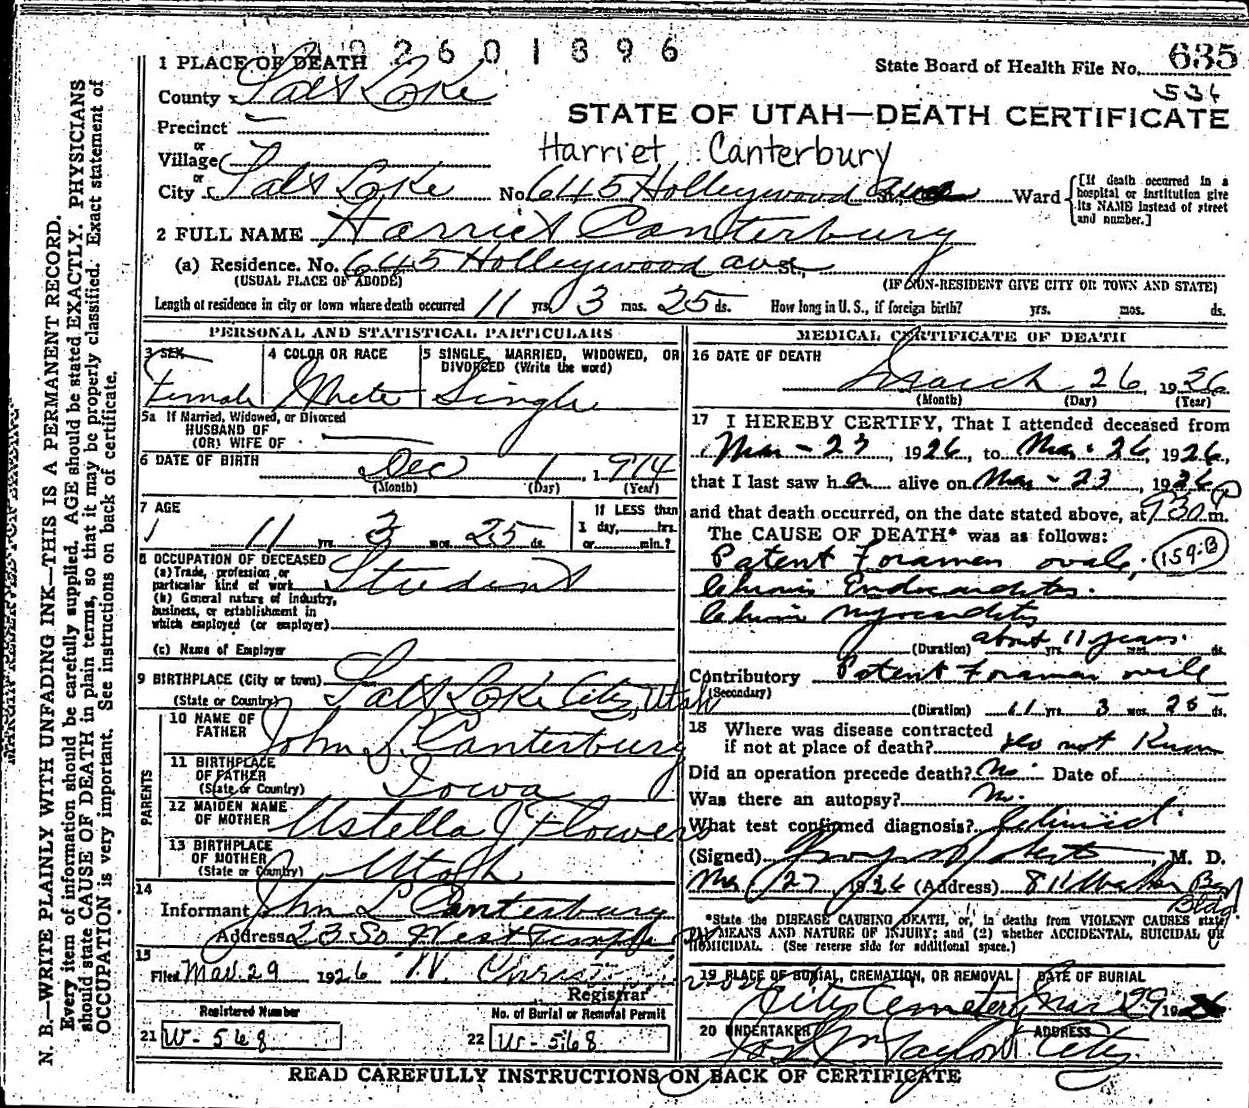 2601896
635
State Board of Health File No.
536
1 PLACE OF DEATH
County Salt Lake
STATE OF UTAH—DEATH CERTIFICATE
Precinct
or
Village
Harriet Canterbury
or
City Salt Lake No. 645 Holleywood Ave St., Ward
[If death occurred in a hospital or institution give its NAME instead of street and number.]
2 FULL NAME Harriet Canterbury
(a) Residence. No. 645 Holleywood ave St.,
(USUAL PLACE OF ABODE) (IF NON-RESIDENT GIVE CITY OR TOWN AND STATE)
Length of residence in city or town where death occurred 11 yrs. 3 mos. 25 ds. How long in U. S., if foreign birth? yrs. mos. ds.
PERSONAL AND STATISTICAL PARTICULARS
3 SEX
Female
4 COLOR OR RACE
White
5 SINGLE, MARRIED, WIDOWED, OR DIVORCED (Write the word)
Single
5a If Married, Widowed, or Divorced
HUSBAND OF
(OR) WIFE OF
6 DATE OF BIRTH
Dec 1 1914
(Month) (Day) (Year)
7 AGE
11 yrs. 3 mos. 25 ds.
If LESS than
1 day, hrs.
or min.?
8 OCCUPATION OF DECEASED
(a) Trade, profession, or
particular kind of work Student
(b) General nature of industry,
business, or establishment in
which employed (or employer)
(c) Name of Employer
9 BIRTHPLACE (City or town)
(State or Country) Salt Lake City, Utah
PARENTS
10 NAME OF
FATHER John L. Canterbury
11 BIRTHPLACE
OF FATHER
(State or Country) Iowa
12 MAIDEN NAME
OF MOTHER Ustella J Flowers
13 BIRTHPLACE
OF MOTHER
(State or Country) Utah
14
Informant John L Canterbury
Address 23 So West Temple
15
Filed Mar. 29 1926 W.
Registrar
Registered Number
No. of Burial or Removal Permit
21 W-568
22 W-568
MEDICAL CERTIFICATE OF DEATH
16 DATE OF DEATH
March 26 1926
(Month) (Day) (Year)
17 I HEREBY CERTIFY, That I attended deceased from
Mar - 23, 1926, to Mar. 26, 1926,
that I last saw her alive on Mar - 23, 1926
and that death occurred, on the date stated above, at 930 P m.
The CAUSE OF DEATH* was as follows:
Patent Foramen ovale. 159-B
Chronic Endocarditis.
Chronic myocarditis
about 11 years.
(Duration) yrs. mos. ds.
Contributory Patent Foramen ovale
(Secondary)
(Duration) 11 yrs. 3 mos. 25 ds.
18 Where was disease contracted
if not at place of death? do not Know
Did an operation precede death? No. Date of
Was there an autopsy? No.
What test confirmed diagnosis? Clinical.
(Signed) , M. D.
Mar 27 1926 (Address) 811 Walker Bk
Bldg.
*State the DISEASE CAUSING DEATH, or, in deaths from VIOLENT CAUSES state
(1) MEANS AND NATURE OF INJURY; and (2) whether ACCIDENTAL, SUICIDAL OR
HOMICIDAL. (See reverse side for additional space.)
19 PLACE OF BURIAL, CREMATION, OR REMOVAL
City Cemetery
DATE OF BURIAL
Mar 29 1926
20 UNDERTAKER
Jos Wm Taylor
ADDRESS
City
READ CAREFULLY INSTRUCTIONS ON BACK OF CERTIFICATE
N. B.—WRITE PLAINLY WITH UNFADING INK—THIS IS A PERMANENT RECORD.
Every item of information should be carefully supplied. AGE should be stated EXACTLY. PHYSICIANS
should state CAUSE OF DEATH in plain terms, so that it may be properly classified. Exact statement of
OCCUPATION is very important. See instructions on back of certificate.